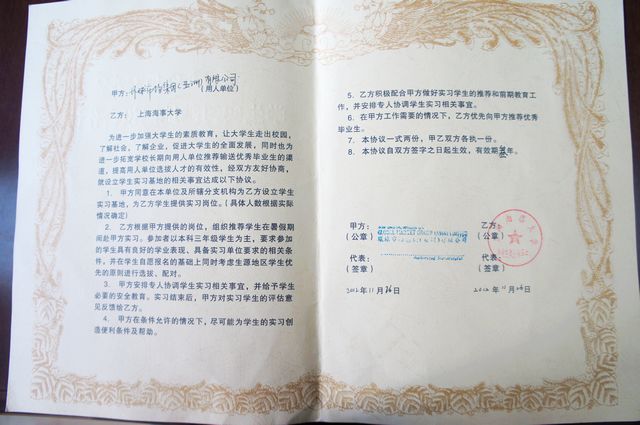 甲方：
有限公司
（用人单位）
乙方：  上海海事大学
为进一步加强大学生的素质教育，让大学生走出校园，
了解社会，了解企业，促进大学生的全面发展，同时也为
进一步拓宽学校长期向用人单位推荐输送优秀毕业生的渠
道，提高用人单位选拔人才的有效性，经双方友好协商，
就设立学生实习基地的相关事宜达成以下协议。
1. 甲方同意在本单位及所辖分支机构为乙方设立学生
实习基地，为乙方学生提供实习岗位。（具体人数根据实际
情况确定）
2. 乙方根据甲方提供的岗位，组织推荐学生在暑假期
间赴甲方实习。参加者以本科三年级学生为主，要求参加
的学生具有良好的学业表现、具备实习单位要求的相关条
件，并在学生自愿报名的基础上同时考虑生源地区学生优
先的原则进行选拔、配对。
3. 甲方安排专人协调学生实习相关事宜，并给予学生
必要的安全教育。实习结束后，甲方对实习学生的评估意
见反馈给乙方。
4. 甲方在条件允许的情况下，尽可能为学生的实习创
造便利条件及帮助。
5. 乙方积极配合甲方做好实习学生的推荐和前期教育工
作，并安排专人协调学生实习相关事宜。
6. 在甲方工作需要的情况下，乙方优先向甲方推荐优秀
毕业生。
7. 本协议一式两份，甲乙双方各执一份。
8. 本协议自双方签字之日起生效，有效期 年。
甲方：
（公章）
代表：
（签章）
2012年11月26日
乙方：
（公章）
代表：
（签章）
2012年11月26日